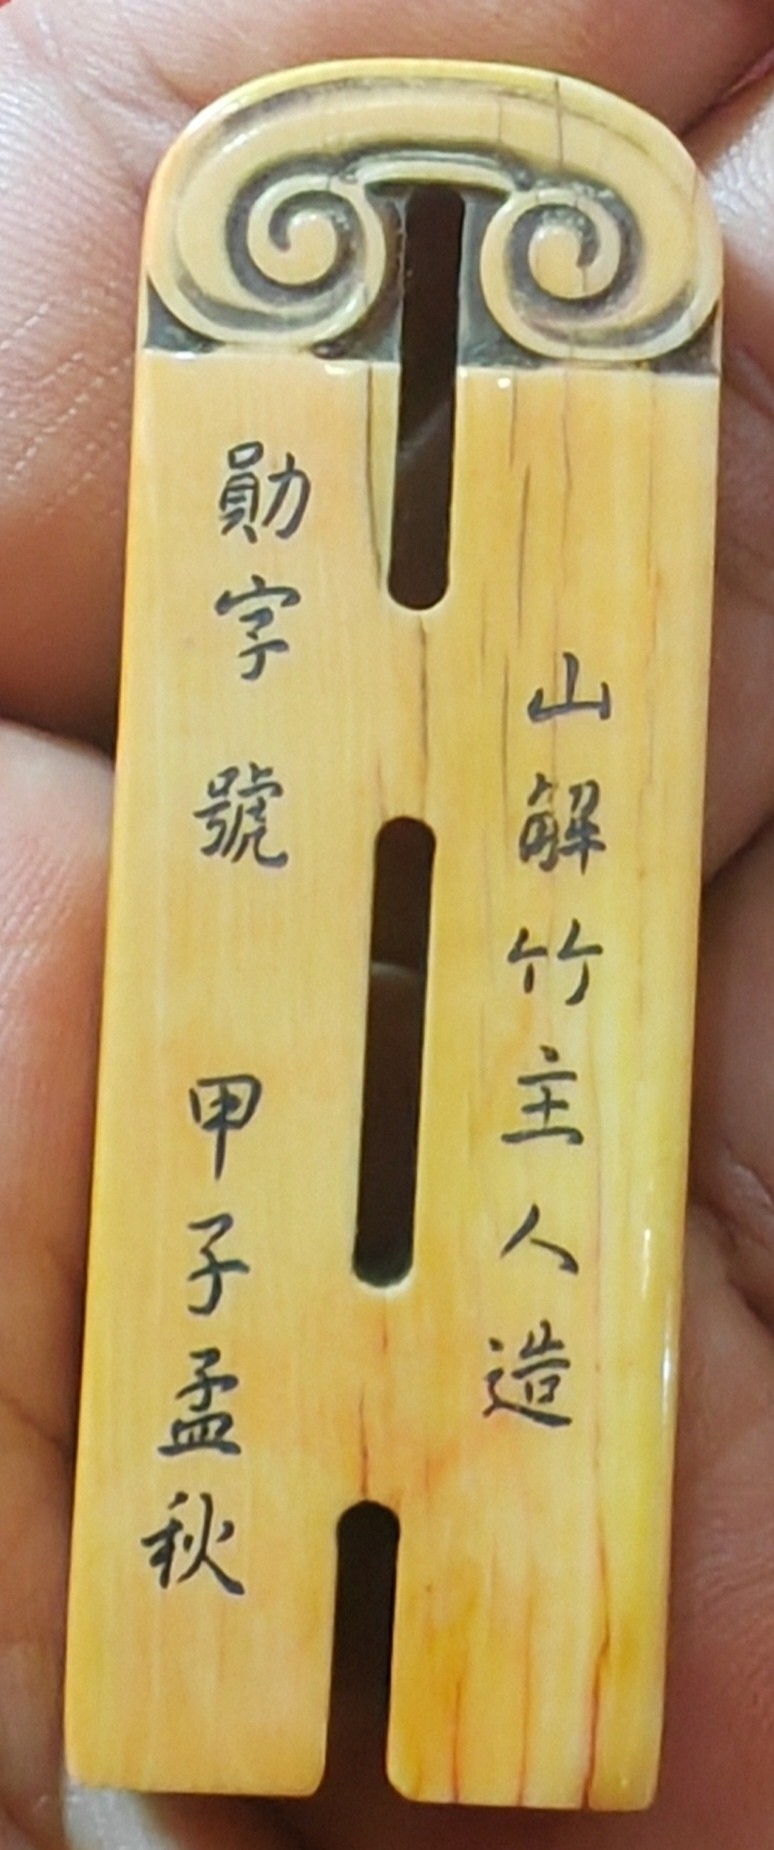 山解竹主人造
勛字號 甲子孟秋